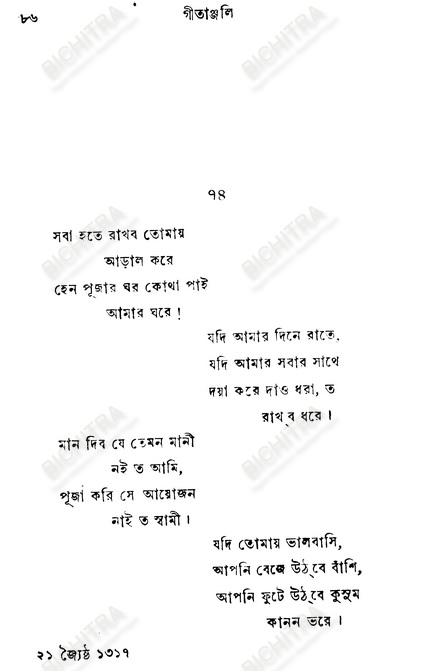 ৮৬
গীতাঞ্জলি
৭৪
সবা হতে রাখব তোমায়
আড়াল করে
হেন পূজার ঘর কোথা পাই
আমার ঘরে !
যদি আমার দিনে রাতে,
যদি আমার সবার সাথে
দয়া করে দাও ধরা, ত
রাখ্‌ব ধরে ।
মান দিব যে তেমন মানী
নই ত আমি,
পূজা করি সে আয়োজন
নাই ত স্বামী ।
যদি তোমায় ভালবাসি,
আপনি বেজে উঠ্‌বে বাঁশি,
আপনি ফুটে উঠ্‌বে কুসুম
কানন ভরে ।
২১ জ্যৈষ্ঠ ১৩১৭
BICHITRA
BICHITRA
BICHITRA
BICHITRA
BICHITRA
BICHITRA
BICHITRA
BICHITRA